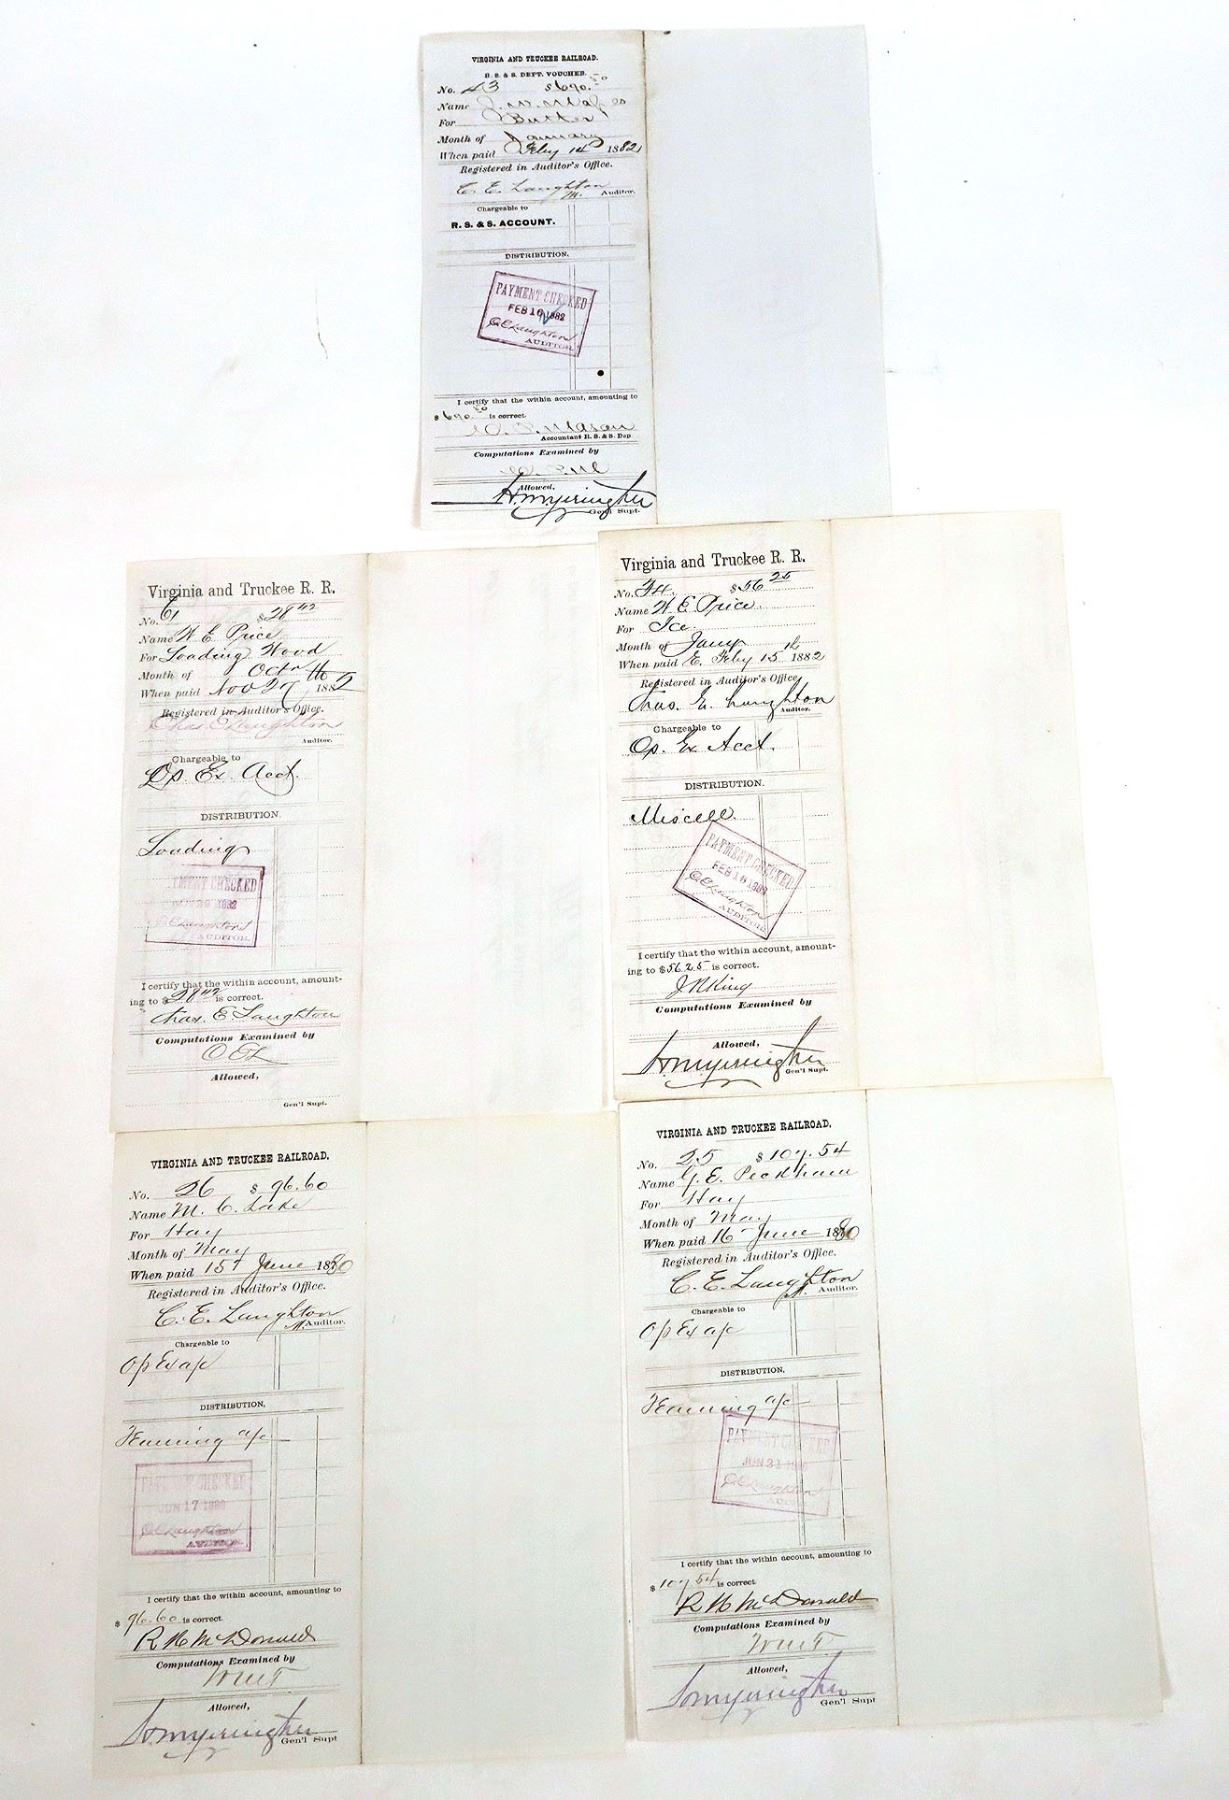 VIRGINIA AND TRUCKEE RAILROAD.
R. S. & S. DEPT. VOUCHER.
No. 43 $690.50
Name J. W. Mapes
For Butter
Month of January
When paid Feby 14 1882
Registered in Auditor's Office.
C. E. Laughton
M. Auditor.
Chargeable to
R. S. & S. ACCOUNT.
DISTRIBUTION.
PAYMENT CHECKED
FEB 16 1882
C E Laughton
AUDITOR.
I certify that the within account, amounting to
$690.50 is correct.
Mason
Accountant R. S. & S. Dep
Computations Examined by
Allowed,
H. M. Yerington
Gen'l Supt.
Virginia and Truckee R. R.
No. 61 $28 42
Name W E Price
For Loading Wood
Month of Octr
When paid Nov 27 1882
Registered in Auditor's Office.
Chas. E Laughton
Auditor.
Chargeable to
Op. Ex. Acct.
DISTRIBUTION.
Loading
MENT CHECKED
1882
C E Laughton
AUDITOR.
I certify that the within account, amount-
ing to $28 42 is correct.
Chas. E Laughton
Computations Examined by
C E L
Allowed,
Gen'l Supt.
Virginia and Truckee R. R.
No. 34. $56 25
Name W E Price
For Ice
Month of Jany
When paid Feby 15 1882
Registered in Auditor's Office
Chas. E. Laughton
Auditor.
Chargeable to
Op. Ex Acct.
DISTRIBUTION.
Miscell.
PAYMENT CHECKED
FEB 16 1882
C E Laughton
AUDITOR
I certify that the within account, amount-
ing to $56 25 is correct.
J R King
Computations Examined by
Allowed,
H. M. Yerington
Gen'l Supt.
VIRGINIA AND TRUCKEE RAILROAD.
No. 26 $ 96.60
Name M. C. Lake
For Hay
Month of May
When paid 15th June 1880
Registered in Auditor's Office.
C. E. Laughton
M. Auditor.
Chargeable to
Op Ex a/c
DISTRIBUTION.
Teaming a/c
PAYMENT CHECKED
JUN 17 1880
C E Laughton
AUDITOR.
I certify that the within account, amounting to
$ 96.60 is correct.
R H McDonald
Computations Examined by
Allowed,
H. M. Yerington
Gen'l Supt
VIRGINIA AND TRUCKEE RAILROAD.
No. 25 $ 107.54
Name G. E. Peckham
For Hay
Month of May
When paid 16 June 1880
Registered in Auditor's Office.
C. E. Laughton
M. Auditor.
Chargeable to
Op Ex a/c
DISTRIBUTION.
Teaming a/c
PAYMENT CHECKED
JUN 21
C E Laughton
I certify that the within account, amounting to
$ 107 54 is correct.
R H McDonald
Computations Examined by
Allowed,
H. M. Yerington
Gen'l Supt